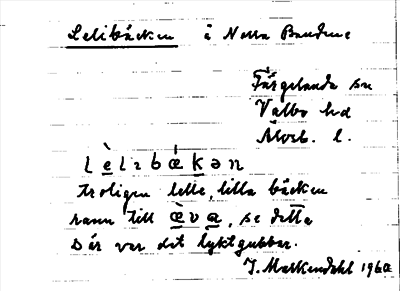 Lelibäcken å Norra Bandene
Färgelanda sn
Valbo hd
Älvsb. l.
lèlɩbǽkən
troligen lelle, lilla bäcken
rann till ǽva, se detta
Där var det lyktgubbar.
J. Markendahl 1960